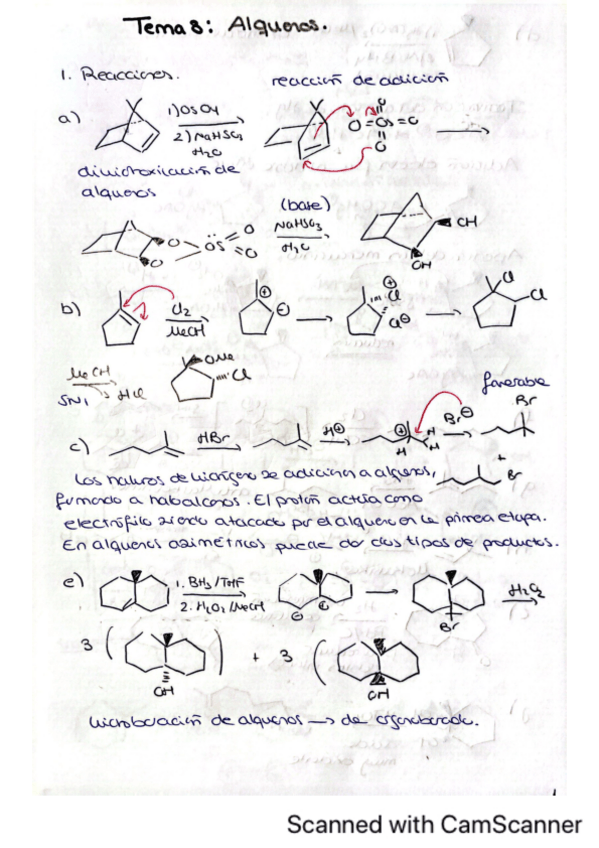 Tema 8: Alquenos.
1. Reacciones.
reacción de adición
a)
1) OsO4
2) NaHSO3
H2O
O=Os=O
O
O
dihidroxilación de
alquenos
(base)
NaHSO3
H2O
O
O
Os
=O
=O
OH
OH
b)
Cl2
MeOH
⊕
⊖
⊕
Cl
Cl⊖
Cl
Cl
MeOH
SN1
HCl
OMe
Cl
favorable
c)
HBr
H⊕
⊕
H
H
H
Br⊖
Br
+
Br
Los haluros de hidrógeno se adicionan a alquenos,
formando a haloalcanos. El protón actúa como
electrófilo siendo atacado por el alqueno en la primera etapa.
En alquenos asimétricos puede dar dos tipos de productos.
e)
1. BH3/THF
2. H2O2/MeOH
Br
H2O2
3
OH
+ 3
OH
hidroboración de alquenos → da organoborado.
Scanned with CamScanner